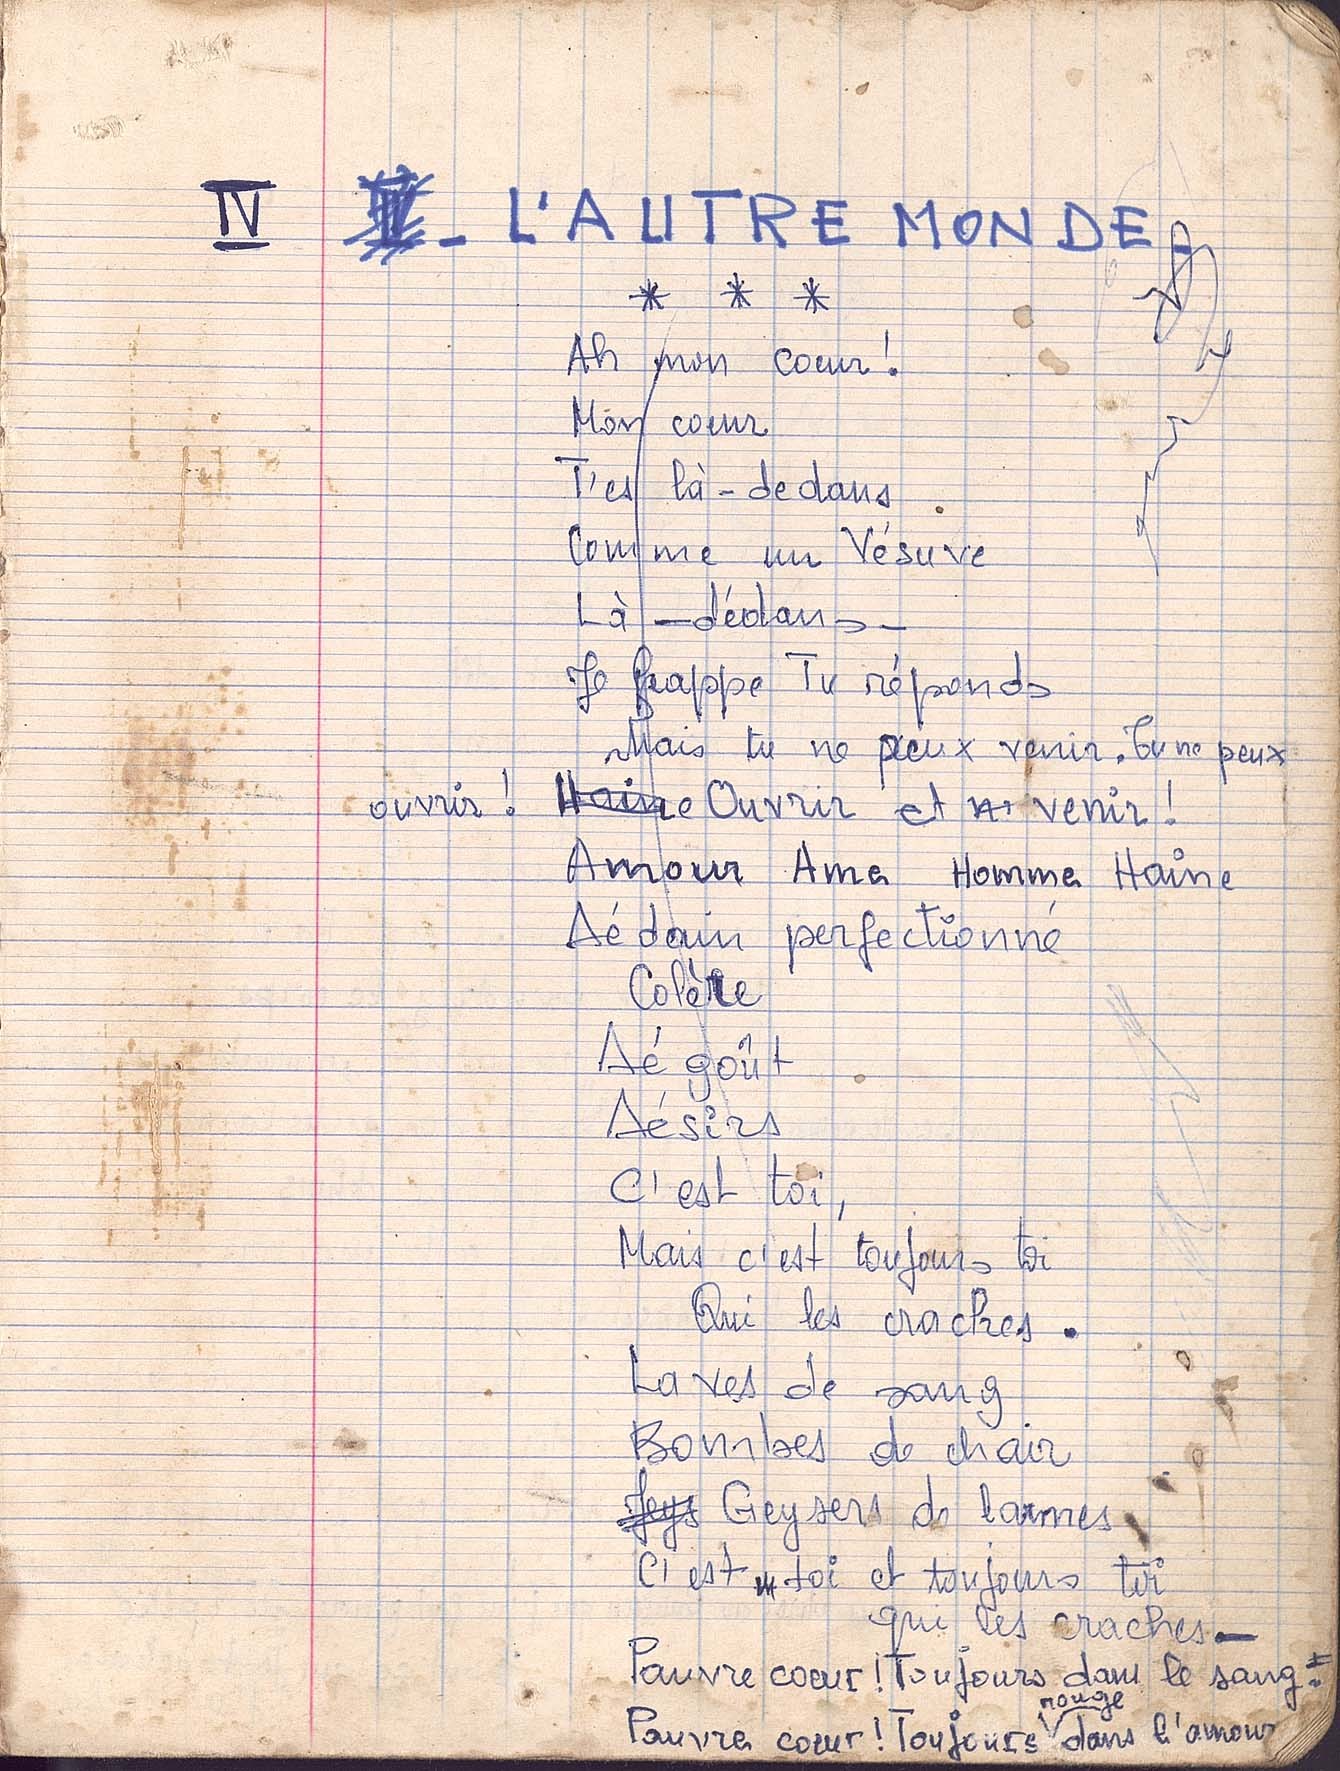 IV - L'AUTRE MONDE
* * *
Ah mon coeur !
Mon coeur
T'es là-dedans
Comme un Vésuve
Là-dédans-
Je frappe Tu réponds
Mais tu ne peux venir. Tu ne peux
ouvrir ! Haine Ouvrir et venir !
Amour Ame Homme Haine
Dédain perfectionné
Colère
Dégoût
Désirs
C'est toi,
Mais c'est toujours toi
Qui les craches.
Laves de sang
Bombes de chair
Jeys Geysers de larmes
C'est toi et toujours toi
qui les craches-
Pauvre coeur ! Toujours dans le sang
rouge
Pauvre coeur ! Toujours dans l'amour